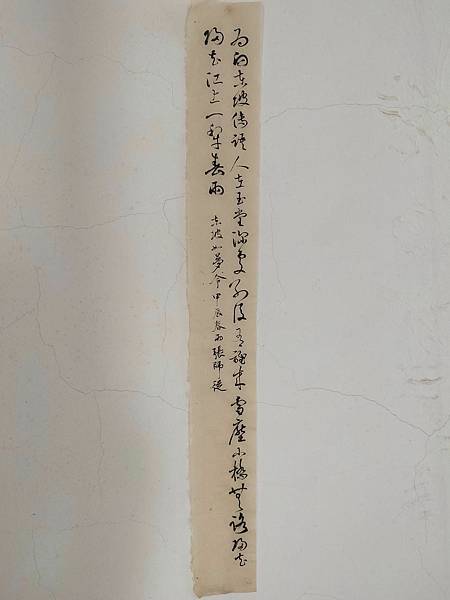 为向东坡传语人在玉堂深处别后有谁来雪压小桥无路归去
归去江上一犁春雨
东坡如梦令甲辰春雨张师从